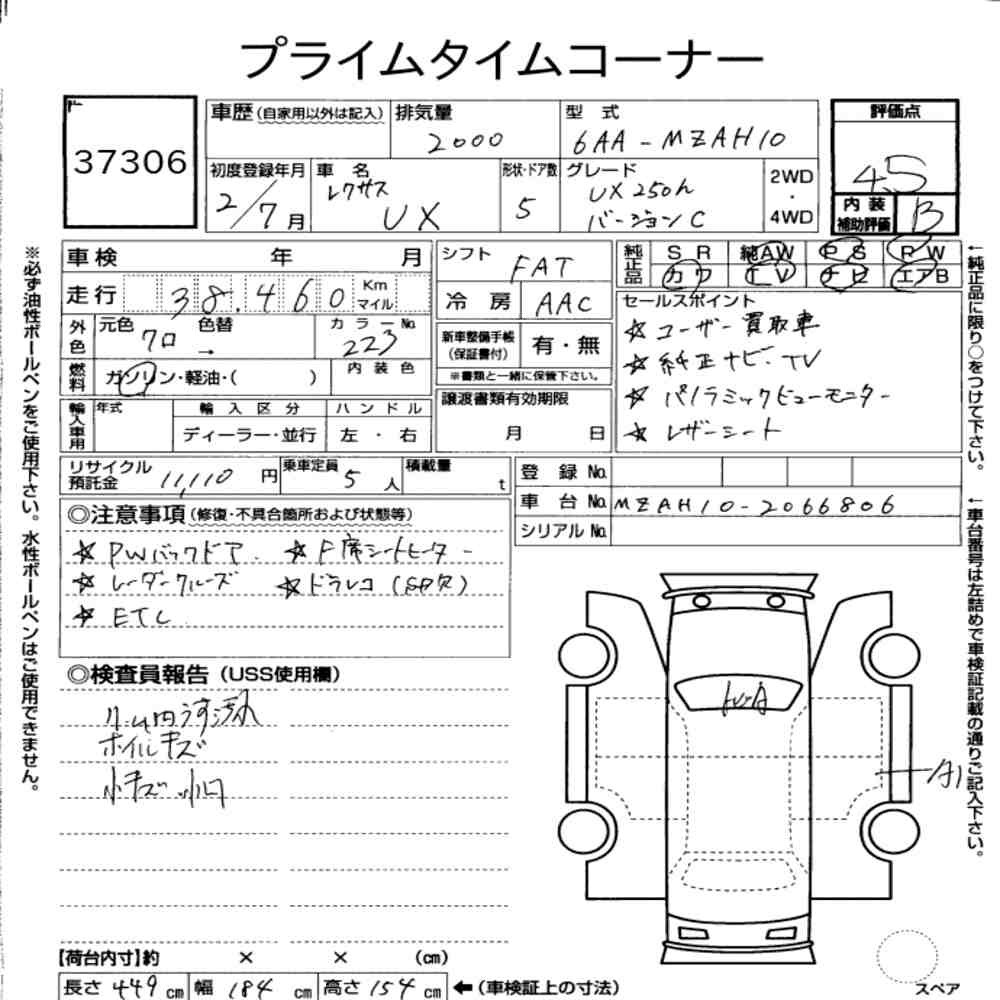 プライムタイムコーナー
37306
車歴(自家用以外は記入) 排気量 2000 型式 6AA-MZAH10 評価点 4.5
初度登録年月 2/7月 車名 レクサス UX 形状・ドア数 5 グレード UX250h バージョンC 2WD・4WD 内装補助評価 B
車検 年 月
走行 38.460 Km マイル
外色 元色 クロ 色替 → カラーNo. 223
燃料 ガソリン・軽油・( ) 内装色
輸入車用 年式 輸入区分 ディーラー・並行 ハンドル 左・右
シフト FAT
冷房 AAC
新車整備手帳(保証書付) 有・無
※書類と一緒に保管下さい。
譲渡書類有効期限
月 日
純正品 SR 純AW PS RW
カワ TV ナビ エアB
セールスポイント
☆ユーザー買取車
☆純正ナビ・TV
☆パノラミックビューモニター
☆レザーシート
リサイクル預託金 11,110円 乗車定員 5人 積載量 t
登録No.
車台No. MZAH10-2066806
シリアルNo.
◎注意事項(修復・不具合箇所および状態等)
☆PWバックドア ☆F席シートヒーター
☆レーダークルーズ ☆ドラレコ(SD欠)
☆ETC
◎検査員報告(USS使用欄)
ルーム内うす汚れ
ホイルキズ
小キズ 小凹
A1
【荷台内寸】約 × × (cm)
長さ 449cm 幅 184cm 高さ 154cm ←(車検証上の寸法)
スペア
※必ず油性ボールペンをご使用下さい。水性ボールペンはご使用できません。
←純正品に限り○をつけて下さい。
←車台番号は左詰めで車検証記載の通りご記入下さい。